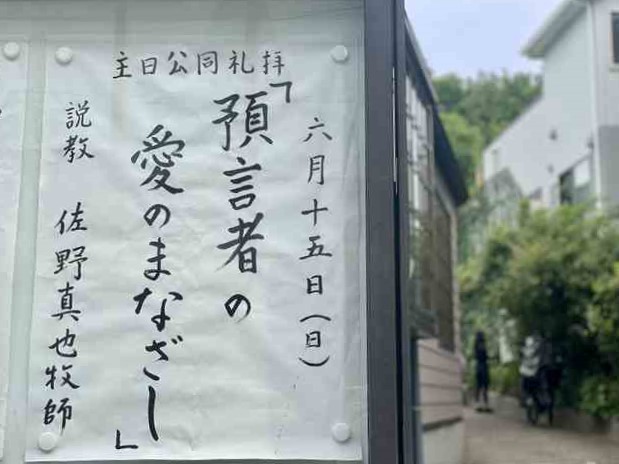 主日公同礼拝
六月十五日(日)
「預言者の
愛のまなざし」
説教 佐野真也牧師